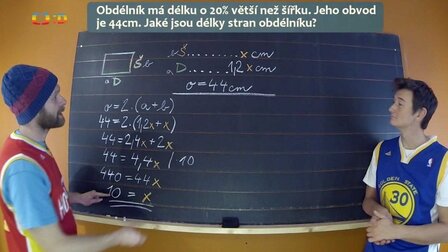 Obdélník má délku o 20% větší než šířku. Jeho obvod
je 44cm. Jaké jsou délky stran obdélníku?
b Š ........ x cm
a D ........ 1,2 x cm
o = 44 cm
Š b
a D
o = 2 . (a + b)
44 = 2 . (1,2x + x)
44 = 2,4x + 2x
44 = 4,4x / 10
440 = 44x
10 = x
GOLDEN STATE
30